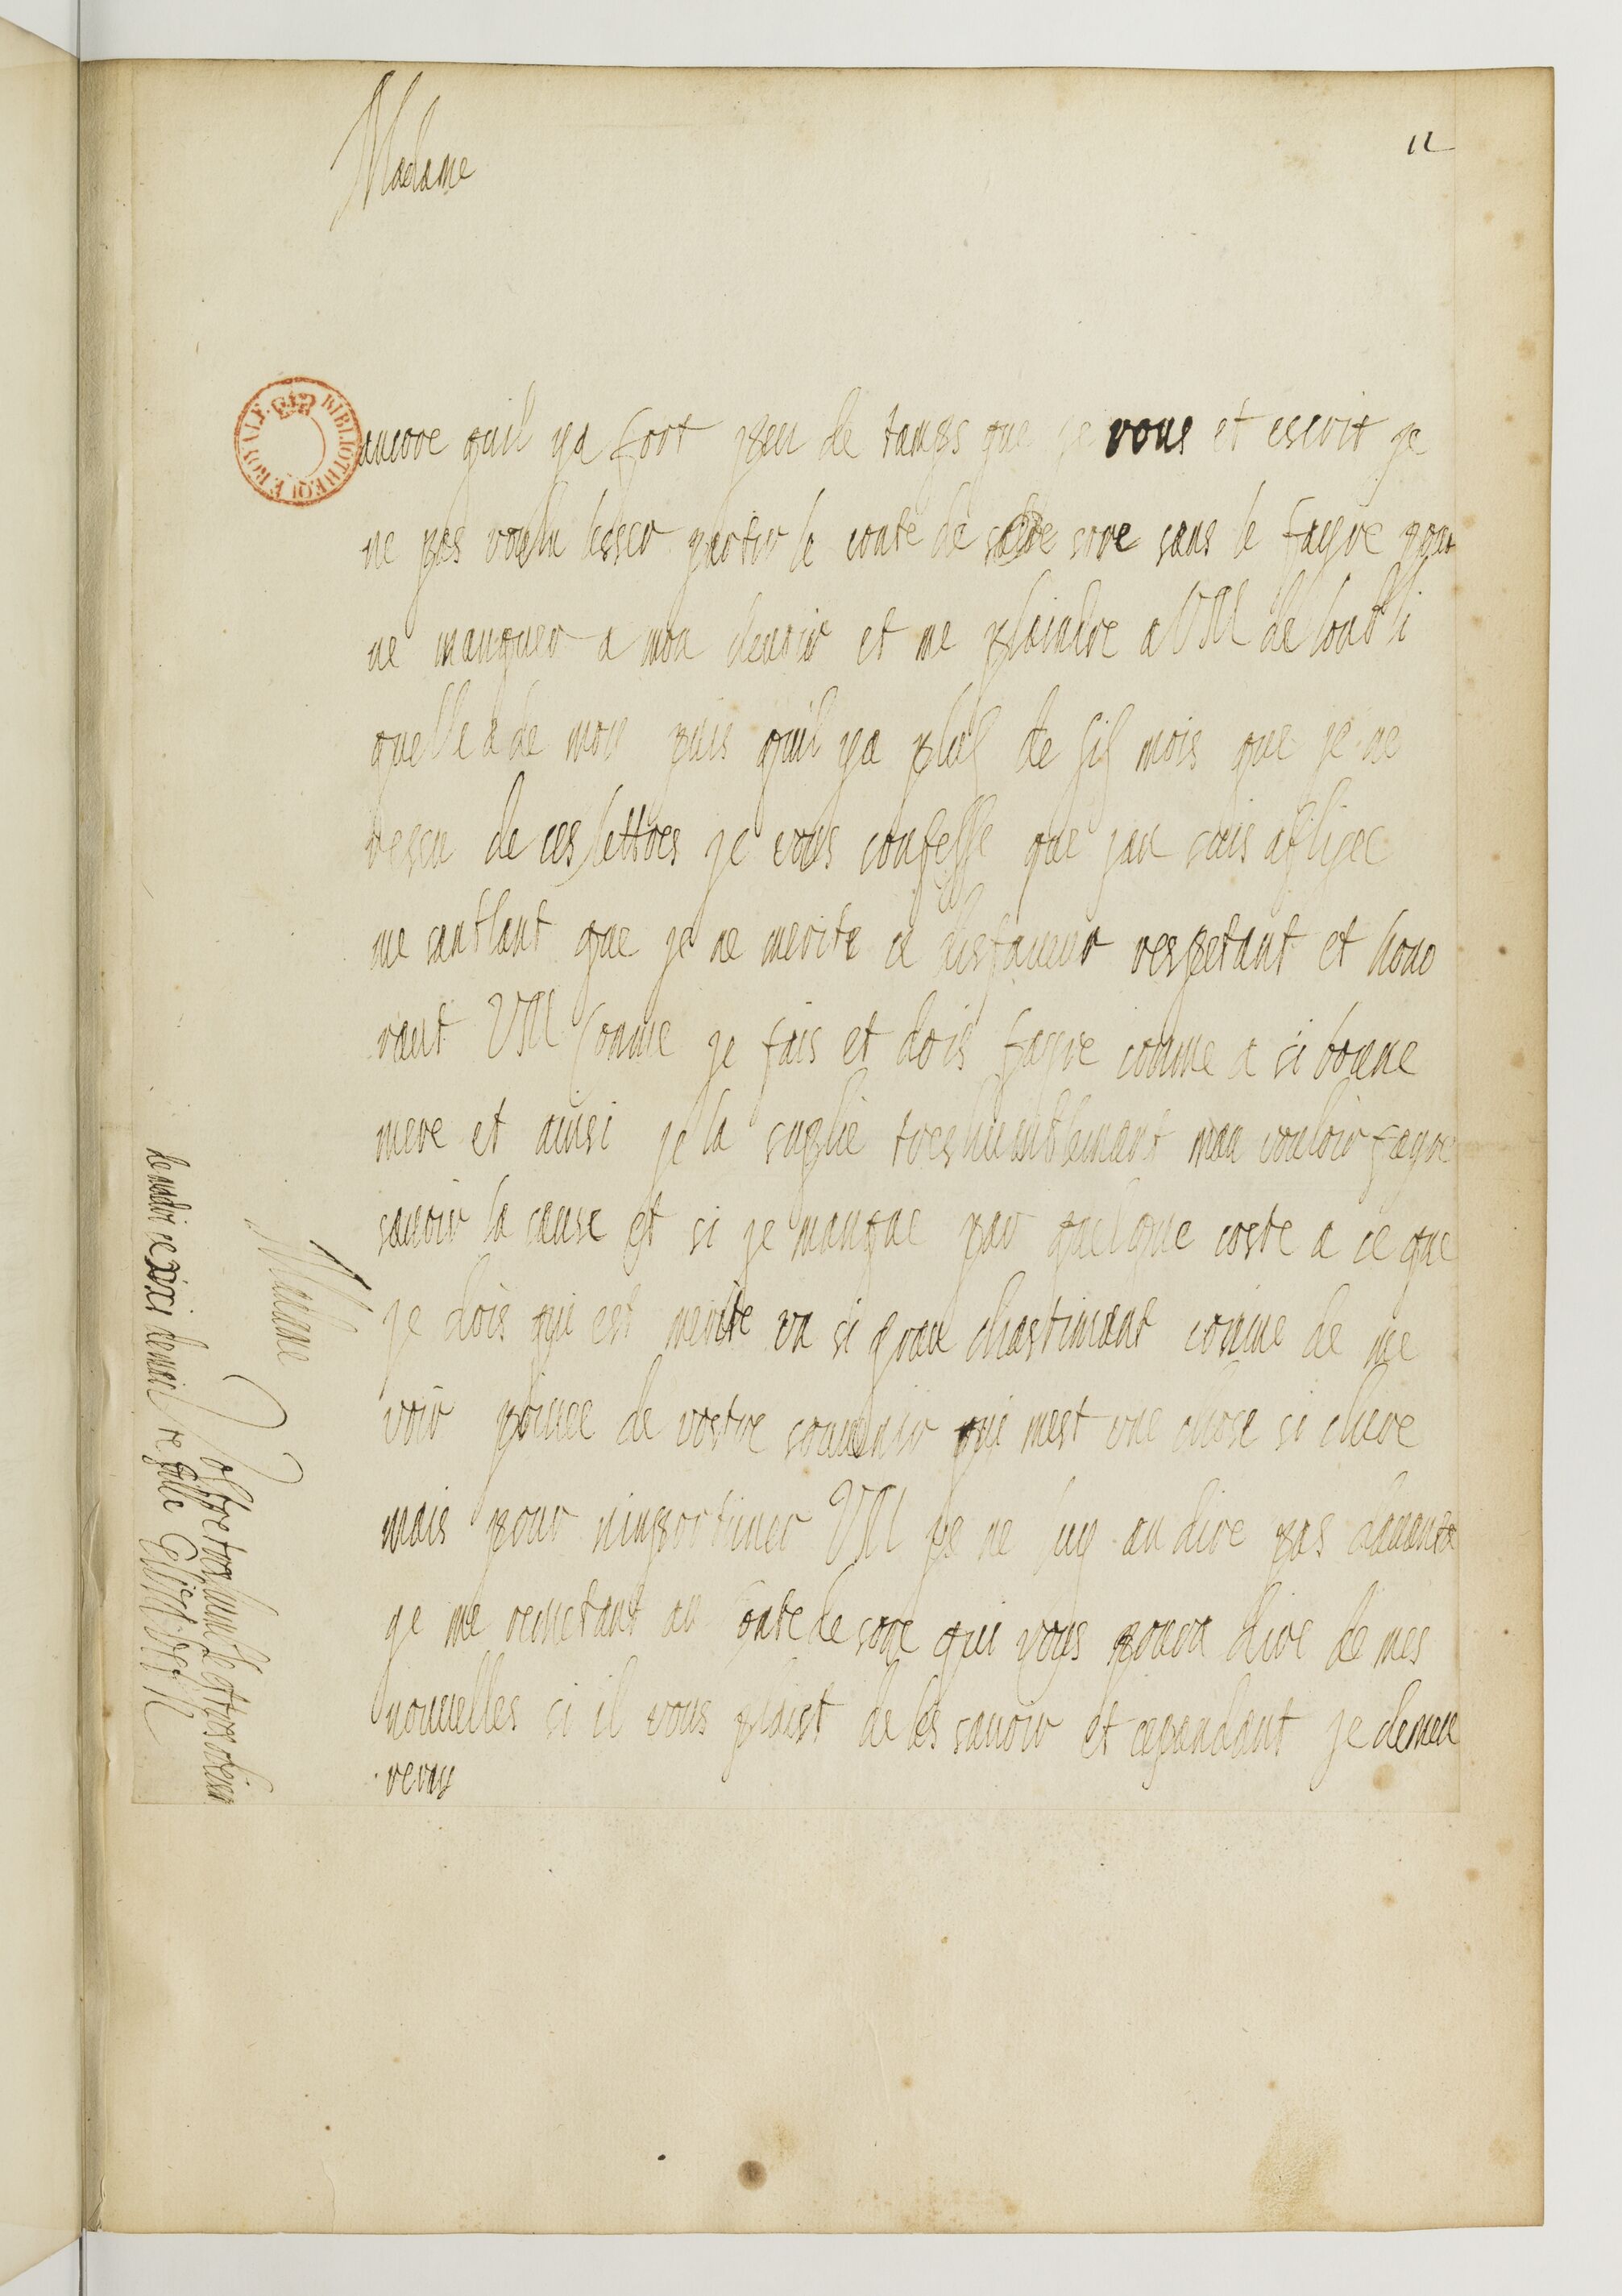 Madame
12
ancore quil ya fort peu de tamps que je vous et escrit je
ne pas voulu lesser partir le conte de sore sans le fayre pour
ne manquer a mon devoir et me plaindre a VM de loubli
quelle a de moy puis quil ya plus de sis mois que je ne
ressu de ces lettres je vous confesse que jan suis afligee
me santlant que je ne merite ce disfaveur respetant et hono
rant VM comme je fais et dois fayre comme a si bonne
mere et ainsi je la suplie treshumblemant man vouloir fayre
savoir la cause et si je manque par quelque coste a ce que
je dois qui est merite un si gran chastimant comme de me
voir privee de vostre souvenir qui mest une chose si chere
mais pour ninportuner VM je ne luy an dire pas davanta
ge me remetant au conte de sore qui vous poura dire de mes
nouvelles si il vous plaist de les savoir et cependant je demeu
reray
Madame
Vostre tres humble et tres obeissa
fille Elisabeth
BIBLIOTHEQUE ROYALE